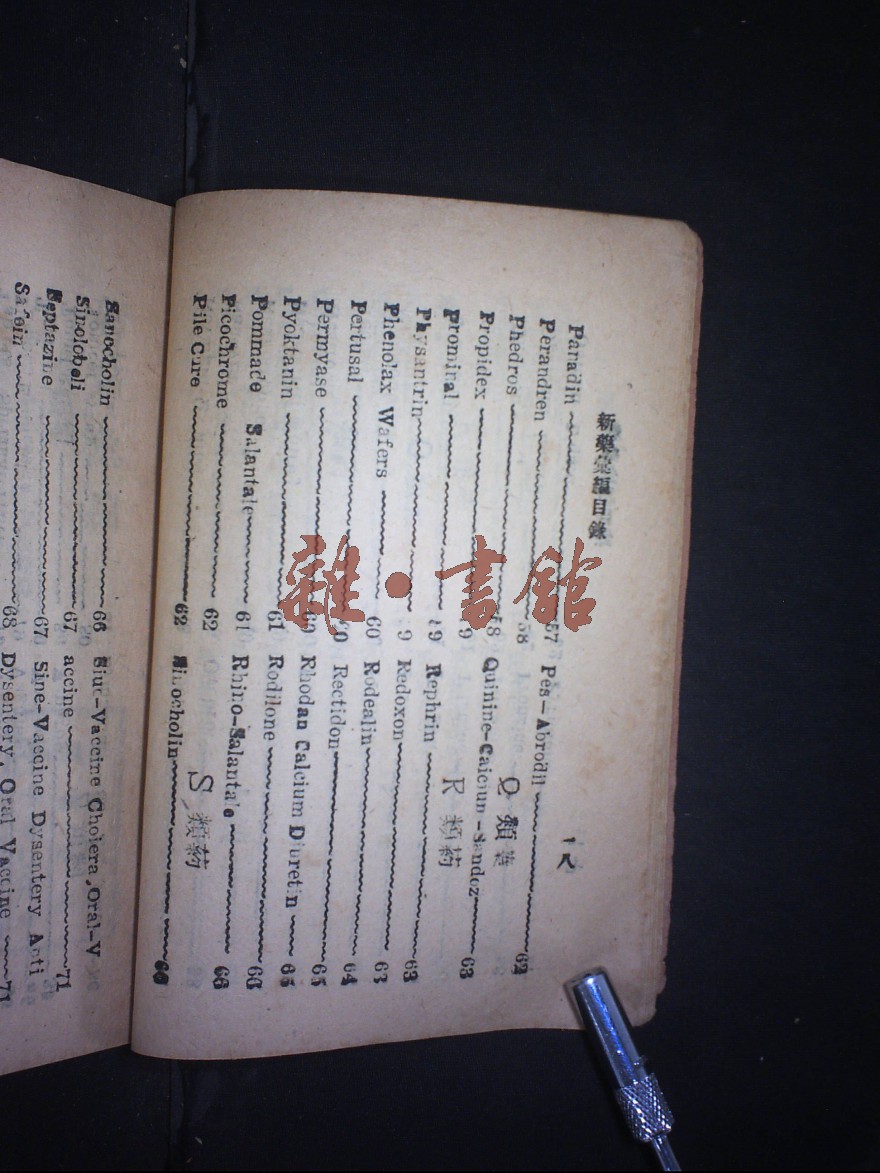 新藥彙編目錄
Paradin 57
Perandren 58
Phedros 58
Propidex 9
Prominal 9
Physantrin 9
Phenolax Wafers 60
Pertusal 0
Permyase 60
Pyoktanin 61
Pommade Salantale 61
Picochrome 62
Pile Cure 62
Pes-Abrodil 62
Q 類
Quinine-Calciun-Sandoz 63
R 類葯
Rephrin 63
Redoxon 63
Rodealin 64
Rectidon 65
Rhodan Calcium Diuretin 65
Rodilone 66
Rhino-Salantale 66
S 類葯
Sinocholin 66
Sanocholin 66
Sinolcholi 67
Septazine 67
68
Sine-Vaccine Cholera, Oral-V
accine 71
Sine-Vaccine Dysentery Anti
Dysentery, Oral Vaccine 71
雜·書館